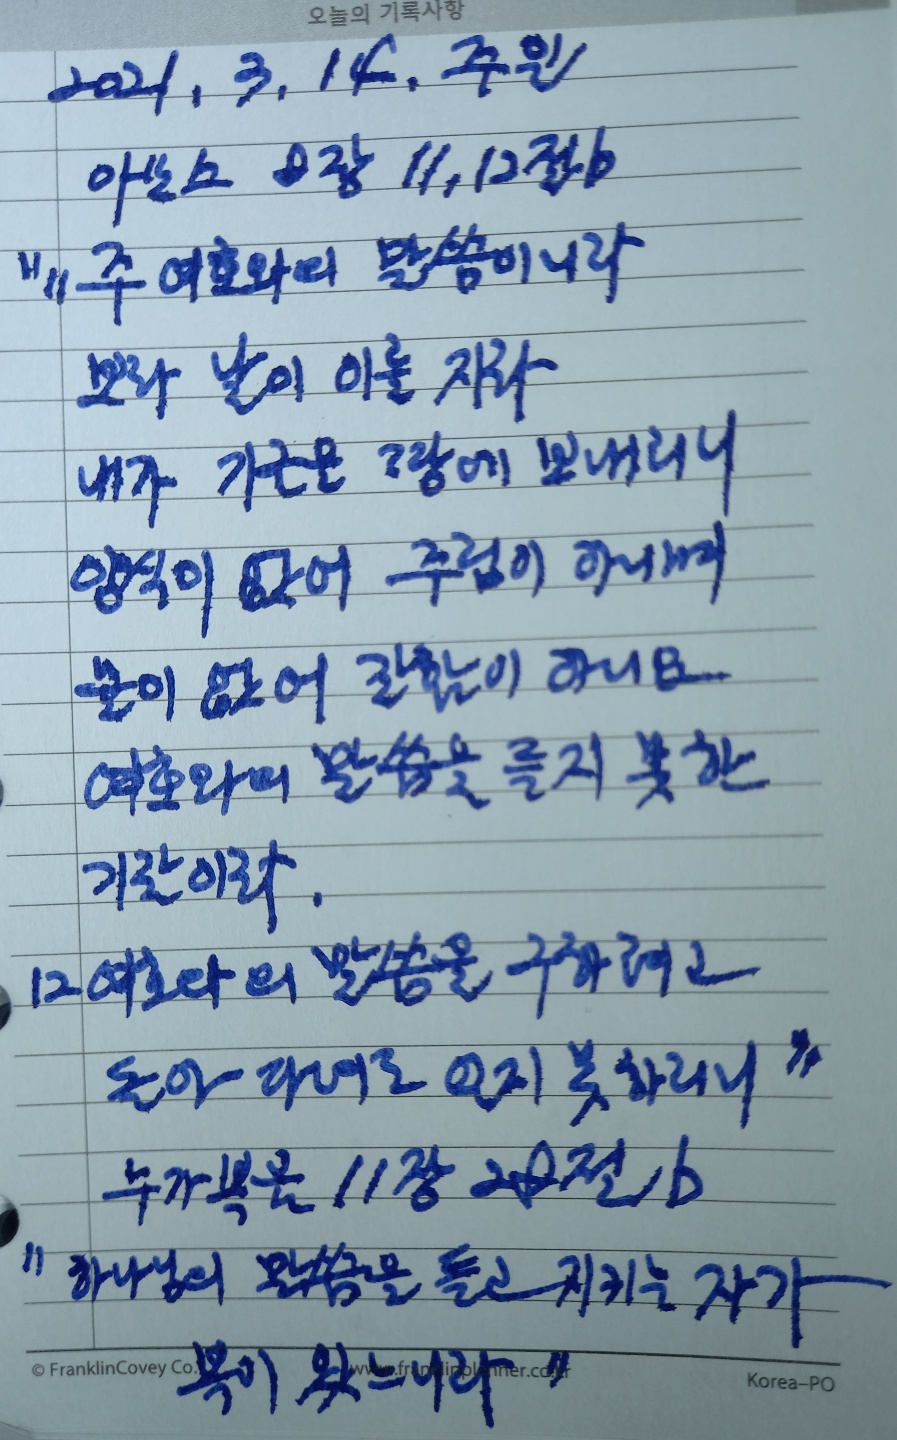 오늘의 기록사항
2021. 3. 14. 주일
아모스 8장 11, 12절b
"11 주 여호와의 말씀이니라
보라 날이 이를지라
내가 기근을 땅에 보내리니
양식이 없어 주림이 아니며
물이 없어 갈함이 아니요
여호와의 말씀을 듣지 못한
기갈이라.
12 여호와의 말씀을 구하려고
돌아다녀도 얻지 못하리니"
누가복음 11장 28절b
"하나님의 말씀을 듣고 지키는 자가
복이 있느니라"
© FranklinCovey Co. www.franklinplanner.co.kr Korea-PO